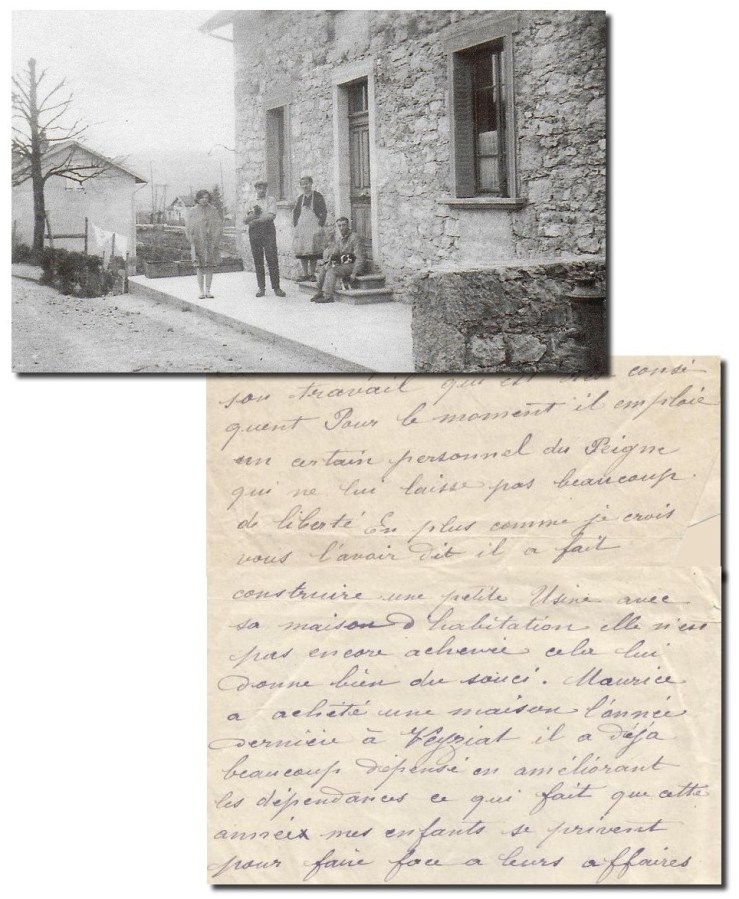 son travail qui est consé
quent Pour le moment il emploie
un certain personnel du Peigne
qui ne lui laisse pas beaucoup
de liberté En plus comme je crois
vous l'avoir dit il a fait
construire une petite Usine avec
sa maison d'habitation elle n'est
pas encore achevée cela lui
donne bien du souci. Maurice
a acheté une maison l'année
dernière à Veyziat il a déjà
beaucoup dépensé en améliorant
les dépendances ce qui fait que cette
année mes enfants se privent
pour faire face a leurs affaires